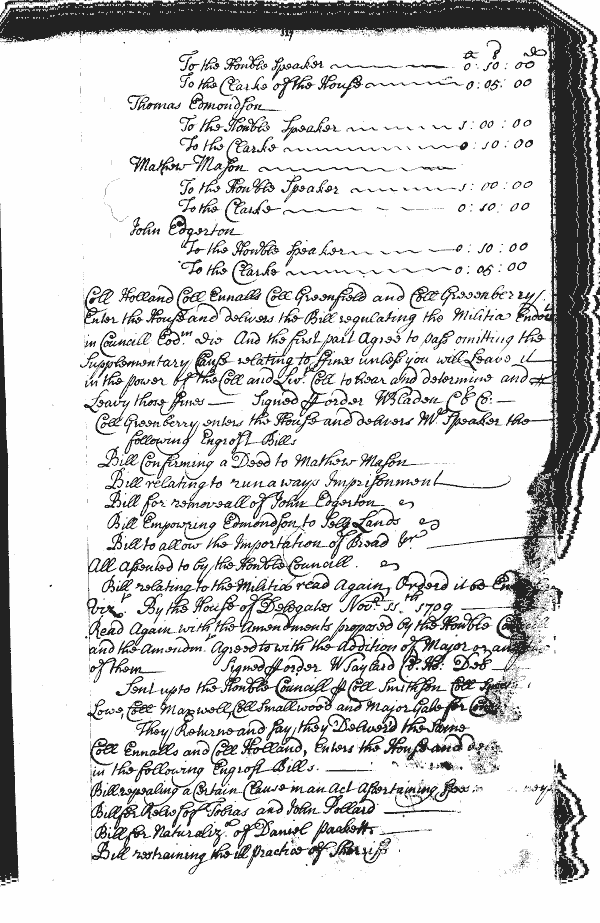 119
£ s d
To the Honble Speaker 0: 10: 00
To the Clarke of the House 0: 05: 00
Thomas Edmondson
To the Honble Speaker 1: 00: 00
To the Clarke 0: 10: 00
Mathew Mason
To the Honble Speaker 1: 00: 00
To the Clarke 0: 10: 00
John Edgerton
To the Honble Speaker 0: 10: 00
To the Clarke 0: 05: 00
Coll Holland Coll Ennalls Coll Greenfield and Coll Greeenberry
Enter the House and delivers the Bill regulating the Militia
in Councill Eod.m die And the first part Agree to pass omitting the
Supplementary Clause relating to ffines unless you will Leave it
in the power of the Coll and Liv.t Coll to hear and determine and
Leavy those ffines Signed p order WBladen Cl. C:
Coll Greenberry enters the House and delivers Mr Speaker the
following Engrost Bills
Bill Confirming a Deed to Mathew Mason
Bill relating to runaways Imprisonment
Bill for removeall of John Edgerton
Bill Empowring Edmondson to Sell Lands
Bill to allow the Importation of Bread &c
All assented to by the Honble Councill
Bill relating to the Militia read Again, Orderd it be
viz.t By the House of Delegates Nov.r 11.th 1709
Read Again with the Amendments proposed by the Honble
and the Amendm.t Agreed to with the Addition of Major or any
of them Signed p order WTaylard Cl. Ho. Del
Sent up to the Honble Councill p Coll Smithson Coll
Lowe, Coll Maxwell, Coll Smallwood and Major Gale for
They Returne and say, they Deliverd the Same
Coll Ennalls and Coll Holland, Enters the House and
in the following Engrost Bills
Bill repealing a Certain Clause in an Act Ascertaining ffees
Bill for Relief of Tobias and John Pollard
Bill for Naturaliz.n of Daniel Packett
Bill restraining the ill Practice of Sherriffs